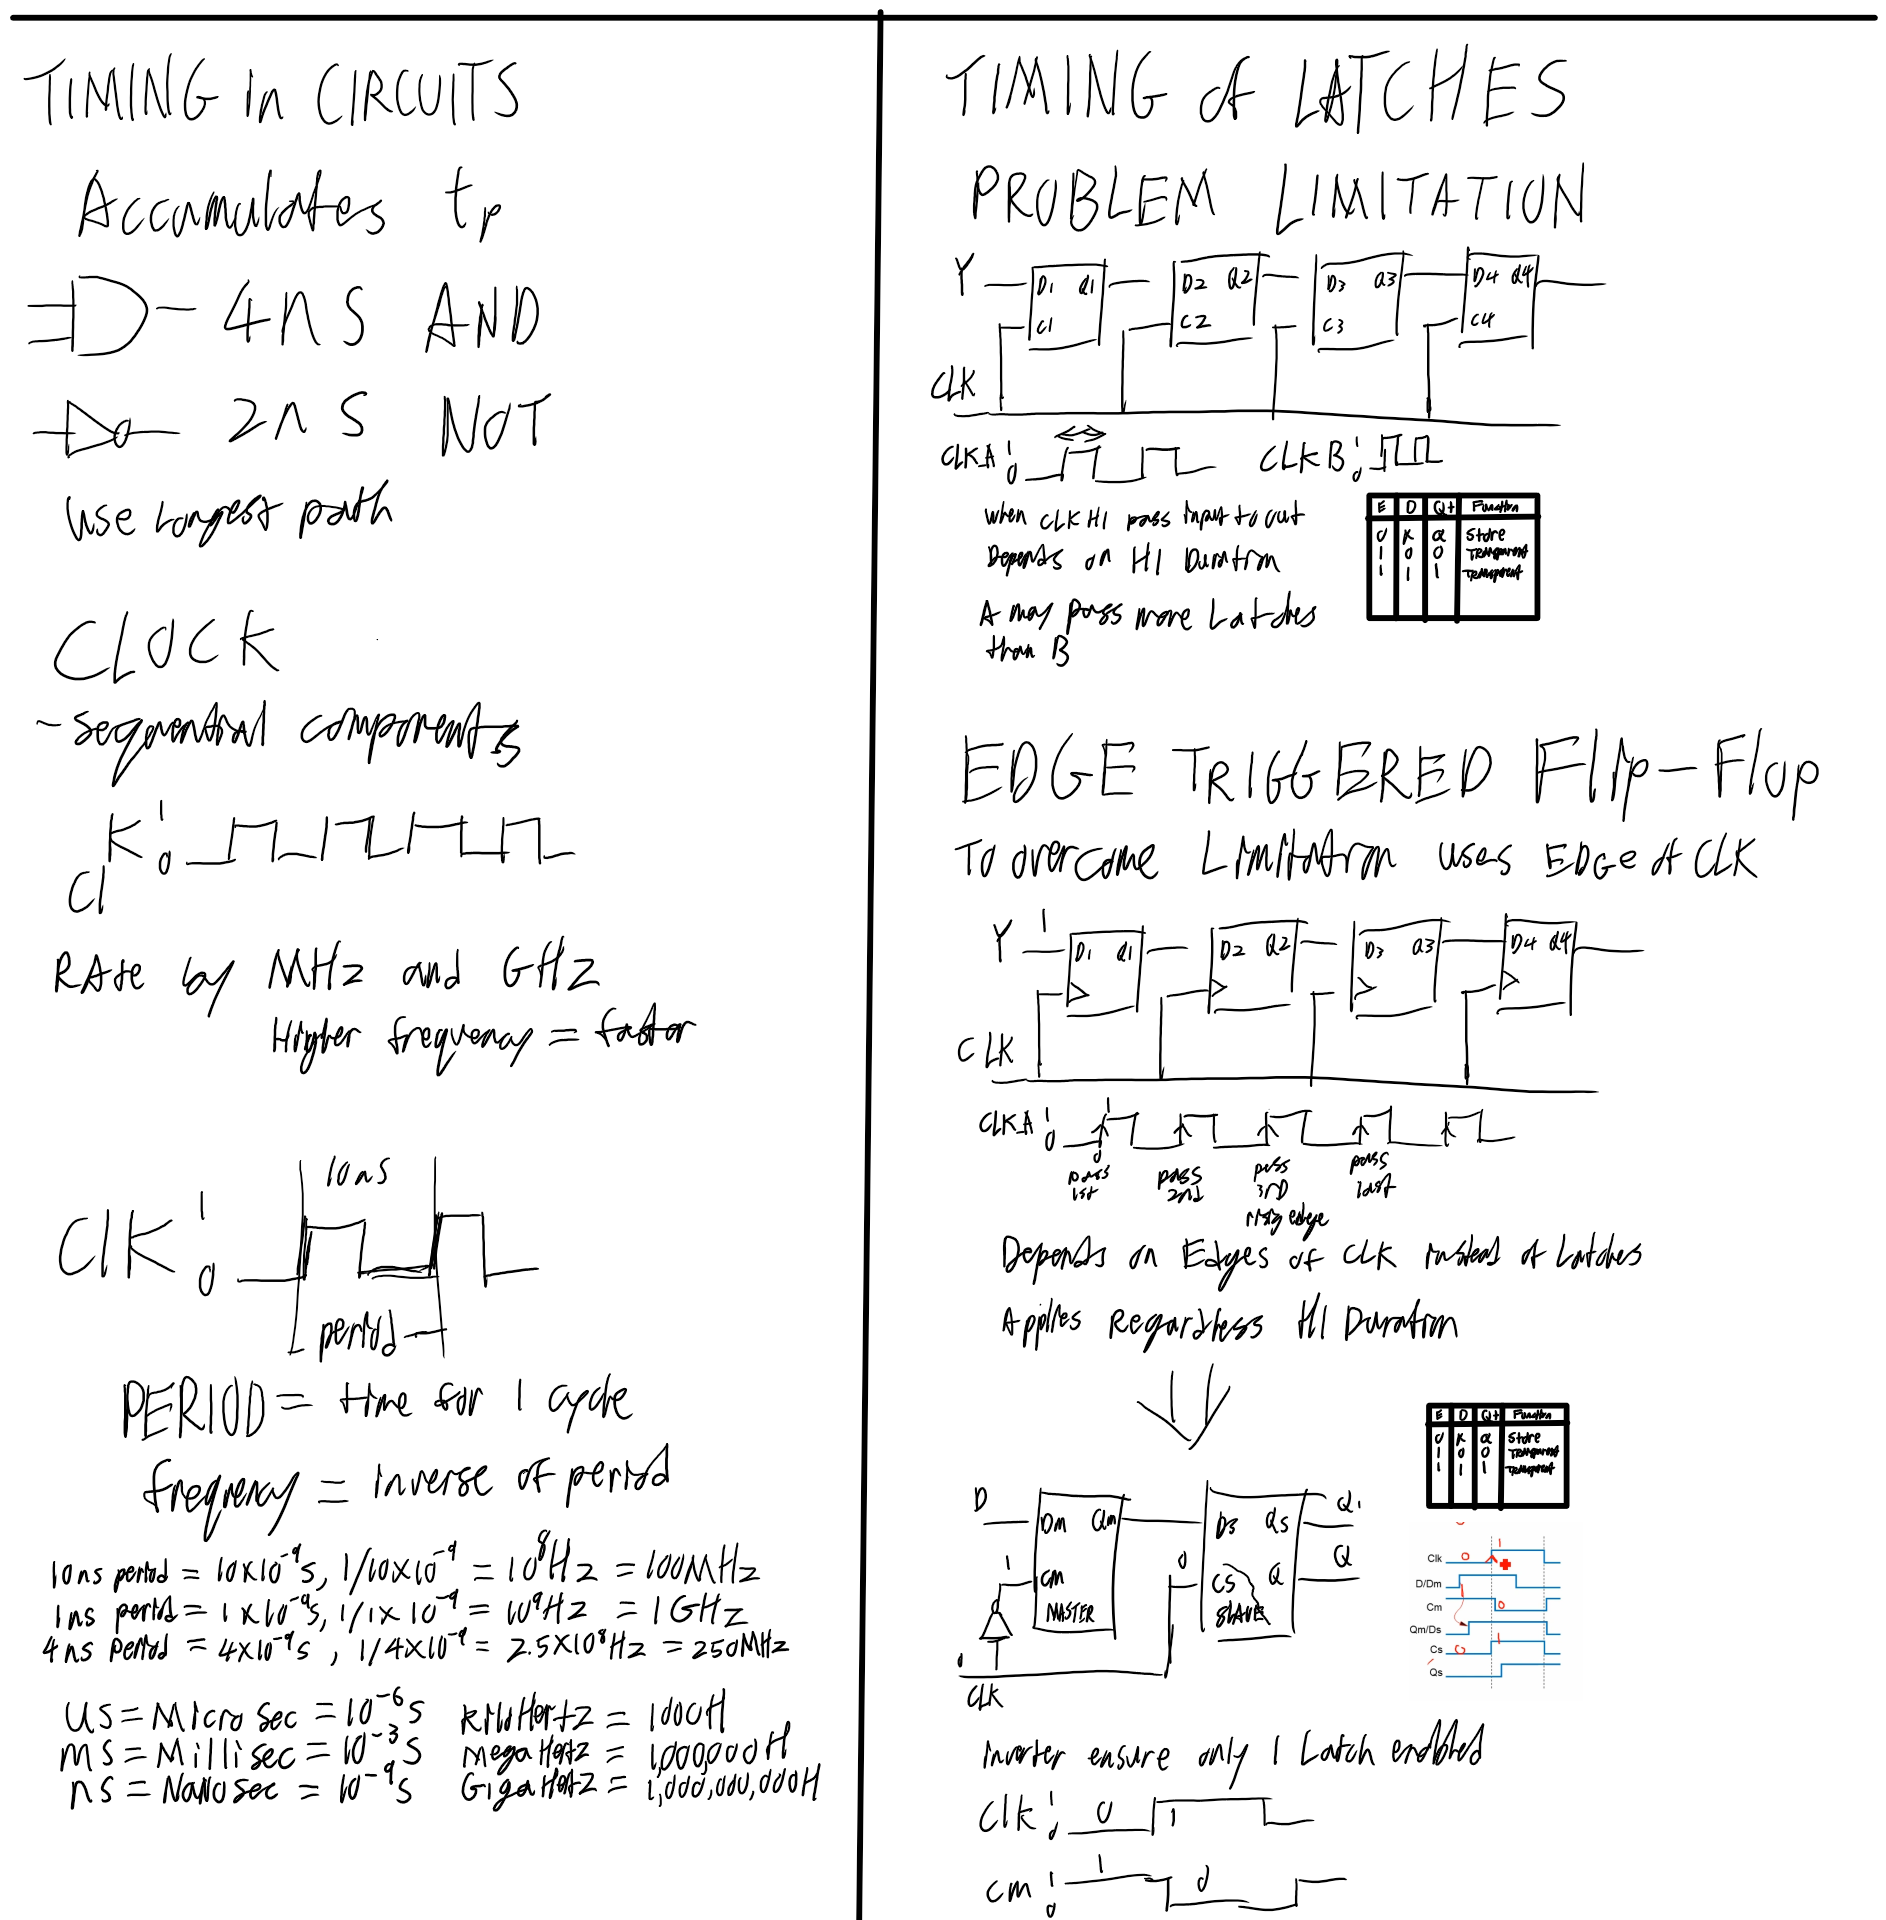 TIMING in CIRCUITS
Accumulates tp
4ns AND
2ns NOT
use longest path
CLOCK
- sequential components
Clk 1 0
RAte by MHz and GHz
Higher frequency = faster
10ns
ClK 1 0
period
PERIOD = time for 1 cycle
frequency = inverse of period
10ns period = 10x10⁻⁹s, 1/10x10⁻⁹ = 10⁸Hz = 100MHz
1ns period = 1x10⁻⁹s, 1/1x10⁻⁹ = 10⁹Hz = 1GHz
4ns period = 4x10⁻⁹s, 1/4x10⁻⁹ = 2.5x10⁸Hz = 250MHz
us = Micro sec = 10⁻⁶s KiloHertz = 1000H
ms = Milli sec = 10⁻³s MegaHertz = 1,000,000H
ns = Nano sec = 10⁻⁹s GigaHertz = 1,000,000,000H
TIMING of LATCHES
PROBLEM LIMITATION
Y D1 Q1 D2 Q2 D3 Q3 D4 Q4
C1 C2 C3 C4
CLK
CLKA 1 0 CLKB 1 0
when CLK HI pass input to out
Depends on HI Duration
A may pass more Latches
than B
E D Q+ Function
0 X Q Store
1 0 0 Transparent
1 1 1 Transparent
EDGE TRIGGERED Flip-Flop
To overcome Limitation uses EDGe of CLK
Y 1 D1 Q1 D2 Q2 D3 Q3 D4 Q4
CLK
CLKA 1 0 1 0
pass 1st pass 2nd pass 3rd pass last
rising edge
Depends on Edges of CLK instead of Latches
Applies Regardless HI Duration
E D Q+ Function
0 X Q Store
1 0 0 Transparent
1 1 1 Transparent
D Dm Qm Ds Qs Q'
1 cm 0 Cs Q Q
MASTER SLAVE
0
CLK
Clk 0 1
D/Dm 1
Cm 0
Qm/Ds
Cs 0 1
Qs
inverter ensure only 1 Latch enabled
Clk 1 0 0 1
cm 1 0 1 0